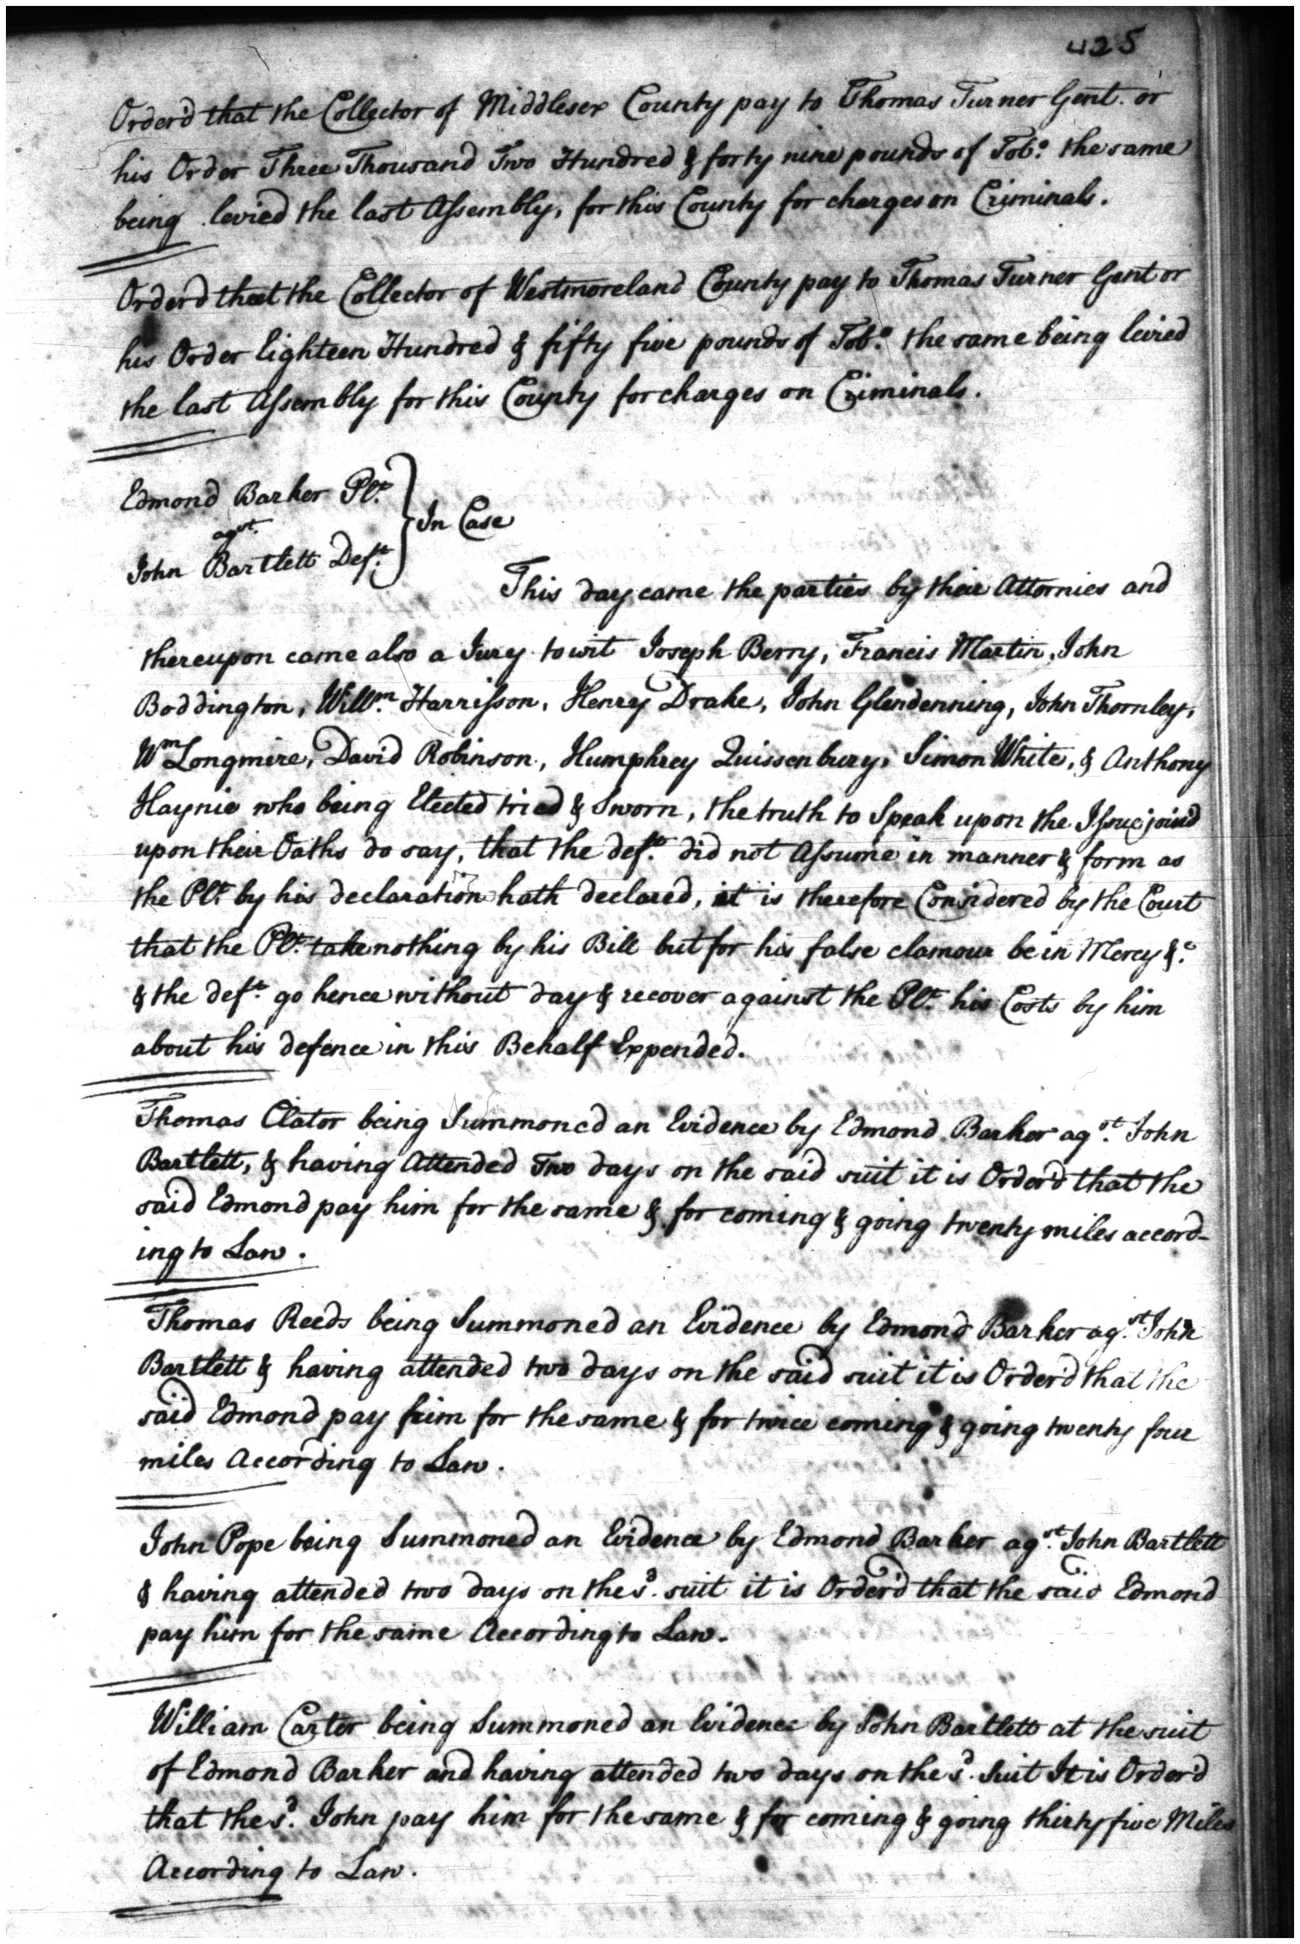 425
Order'd that the Collector of Middlesex County pay to Thomas Turner Gent. or
his Order Three Thousand Two Hundred & forty nine pounds of Tobo. the same
being levied the last Assembly, for this County for charges on Criminals.
Order'd that the Collector of Westmoreland County pay to Thomas Turner Gent or
his Order Eighteen Hundred & fifty five pounds of Tobo. the same being levied
the last Assembly for this County for charges on Criminals.
Edmond Barker Plt.
agst.
In Case
John Bartlett Deft.
This day came the parties by their Attornies and
thereupon came also a Jury to wit Joseph Berry, Francis Martin, John
Boddington, Willm. Harrisson, Henry Drake, John Glendenning, John Thornley,
Wm Longmire, David Robinson, Humphrey Quissenbury, Simon White, & Anthony
Haynie who being Elected tried & Sworn, the truth to Speak upon the Issue join'd
upon their Oaths do say, that the deft. did not Assume in manner & form as
the Plt. by his declaration hath declared, it is therefore Considered by the Court
that the Plt. take nothing by his Bill but for his false clamour be in Mercy &c.
& the deft. go hence without day & recover against the Plt. his Costs by him
about his defence in this Behalf Expended.
Thomas Clator being Summoned an Evidence by Edmond Barker agst. John
Bartlett, & having Attended Two days on the said suit it is Order'd that the
said Edmond pay him for the same & for coming & going twenty miles accord-
ing to Law.
Thomas Reeds being Summoned an Evidence by Edmond Barker agst. John
Bartlett & having attended two days on the said suit it is Order'd that the
said Edmond pay him for the same & for twice coming & going twenty four
miles According to Law.
John Pope being Summoned an Evidence by Edmond Barker agst. John Bartlett
& having attended two days on the sd. suit it is Order'd that the said Edmond
pay him for the same According to Law.
William Carter being Summoned an Evidence by John Bartlett at the suit
of Edmond Barker and having attended two days on the sd. Suit It is Order'd
that the sd. John pay him for the same & for coming & going thirty five Miles
According to Law.